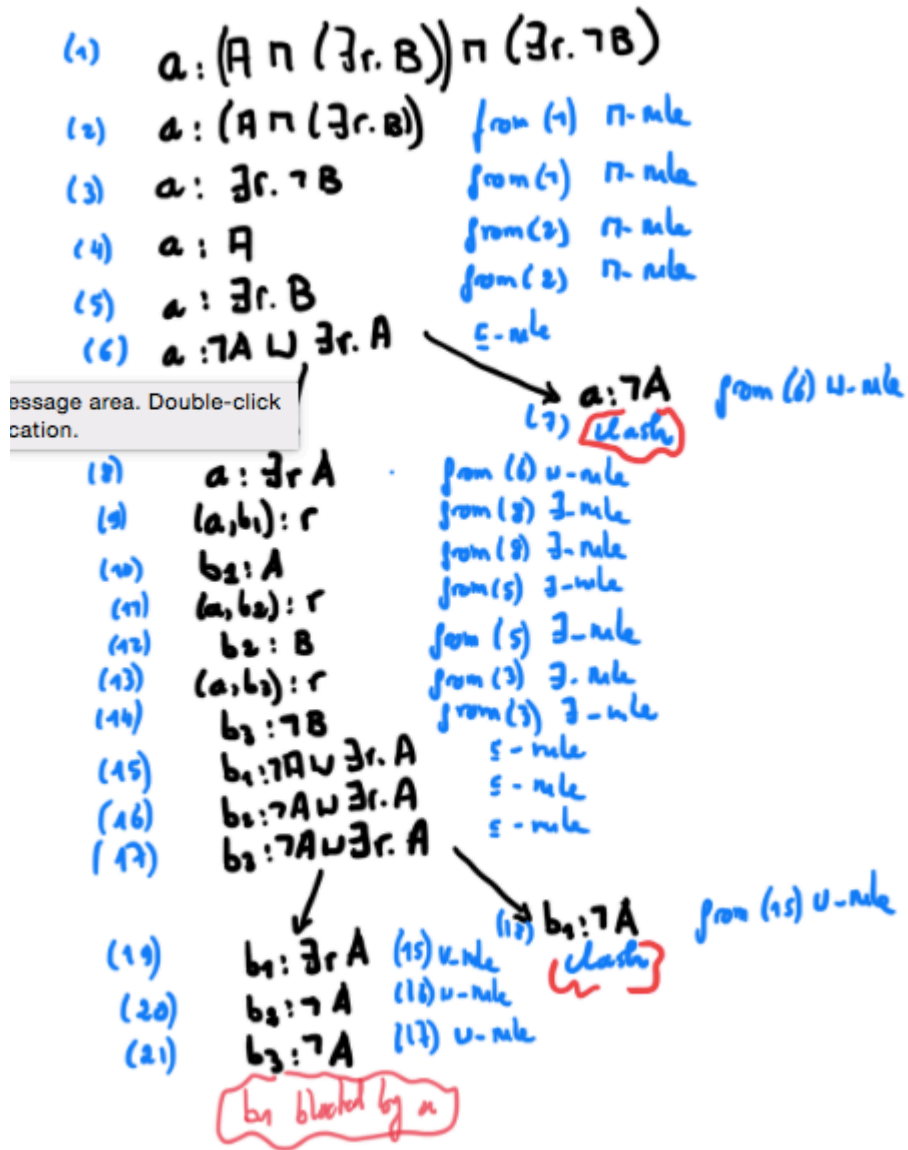 (1) a : (A ⊓ (∃r. B)) ⊓ (∃r. ¬B)
(2) a : (A ⊓ (∃r. B)) from (1) ⊓-rule
(3) a : ∃r. ¬B from (1) ⊓-rule
(4) a : A from (2) ⊓-rule
(5) a : ∃r. B from (2) ⊓-rule
(6) a : ¬A ⊔ ∃r. A ⊑-rule
essage area. Double-click
cation.
(7) a : ¬A from (6) ⊔-rule
clash
(8) a : ∃r A from (6) ⊔-rule
(9) (a,b₁) : r from (8) ∃-rule
(10) b₁ : A from (8) ∃-rule
(11) (a,b₂) : r from (5) ∃-rule
(12) b₂ : B from (5) ∃-rule
(13) (a,b₃) : r from (3) ∃-rule
(14) b₃ : ¬B from (3) ∃-rule
(15) b₁ : ¬A ⊔ ∃r. A ⊑-rule
(16) b₂ : ¬A ⊔ ∃r. A ⊑-rule
(17) b₃ : ¬A ⊔ ∃r. A ⊑-rule
(18) b₁ : ¬A from (15) ⊔-rule
clash
(19) b₁ : ∃r A (15) ⊔-rule
(20) b₂ : ¬A (16) ⊔-rule
(21) b₃ : ¬A (17) ⊔-rule
b₁ blocked by a